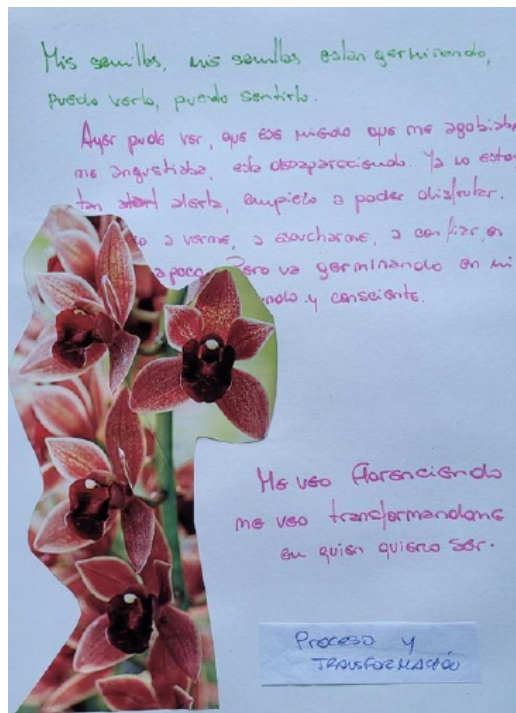 Mis semillas, mis semillas estan germinando,
puedo verlo, puedo sentirlo.
Ayer pude ver, que ese miedo que me agobiaba
me angustiaba, esta desapareciendo. Ya no estoy
tan alerta, empiezo a poder disfrutar.
a verme, a escucharme, a confiar, en
a poco. Pero va germinando en mi
y consciente.
Me veo florenciendo
me veo transformandome
en quien quiero ser.
Proceso y
TRANSFORMACIÓN